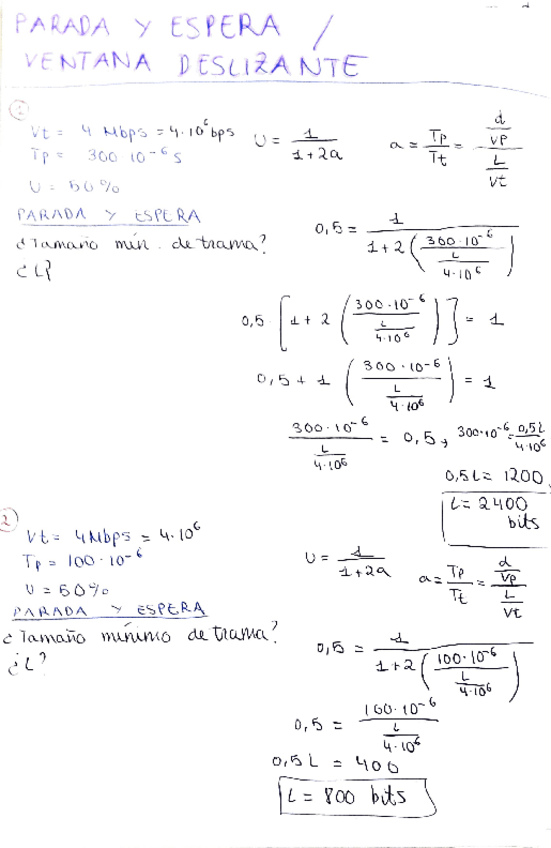 PARADA Y ESPERA /
VENTANA DESLIZANTE
Vt = 4 Mbps = 4·10⁶ bps
Tp = 300 10⁻⁶ s
U = 50%
U = 1 / (1+2a)
a = Tp/Tt = (d/vp) / (L/vt)
PARADA Y ESPERA
¿Tamaño mín. de trama?
¿L?
0,5 = 1 / (1+2 (300·10⁻⁶ / (L / 4·10⁶)))
0,5 · [1 + 2 (300·10⁻⁶ / (L / 4·10⁶))] = 1
0,5 + 1 (300·10⁻⁶ / (L / 4·10⁶)) = 1
300·10⁻⁶ / (L / 4·10⁶) = 0,5, 300·10⁻⁶ = 0,5L / 4·10⁶
0,5L = 1200,
L = 2400
bits
2
Vt = 4Mbps = 4·10⁶
Tp = 100·10⁻⁶
U = 50%
U = 1 / (1+2a)
a = Tp/Tt = (d/vp) / (L/vt)
PARADA Y ESPERA
¿Tamaño mínimo de trama?
¿L?
0,5 = 1 / (1+2 (100·10⁻⁶ / (L / 4·10⁶)))
0,5 = 100·10⁻⁶ / (L / 4·10⁶)
0,5L = 400
L = 800 bits